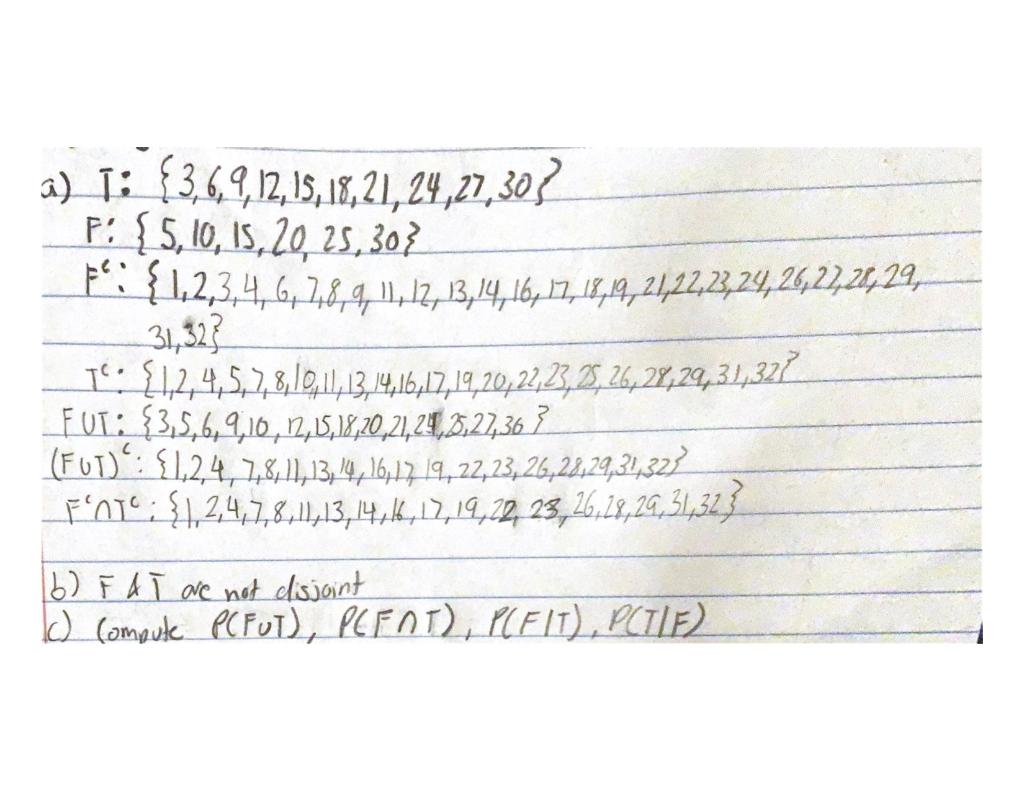 a) T: {3,6,9,12,15,18,21,24,27,30}
F: {5,10,15,20,25,30}
Fᶜ: {1,2,3,4,6,7,8,9,11,12,13,14,16,17,18,19,21,22,23,24,26,27,28,29,
31,32}
Tᶜ: {1,2,4,5,7,8,10,11,13,14,16,17,19,20,22,23,25,26,28,29,31,32}
F∪T: {3,5,6,9,10,12,15,18,20,21,24,25,27,30}
(F∪T)ᶜ: {1,2,4,7,8,11,13,14,16,17,19,22,23,26,28,29,31,32}
Fᶜ∩Tᶜ: {1,2,4,7,8,11,13,14,16,17,19,22,23,26,28,29,31,32}
b) F & T are not disjoint
c) Compute P(F∪T), P(F∩T), P(F|T), P(T|F)